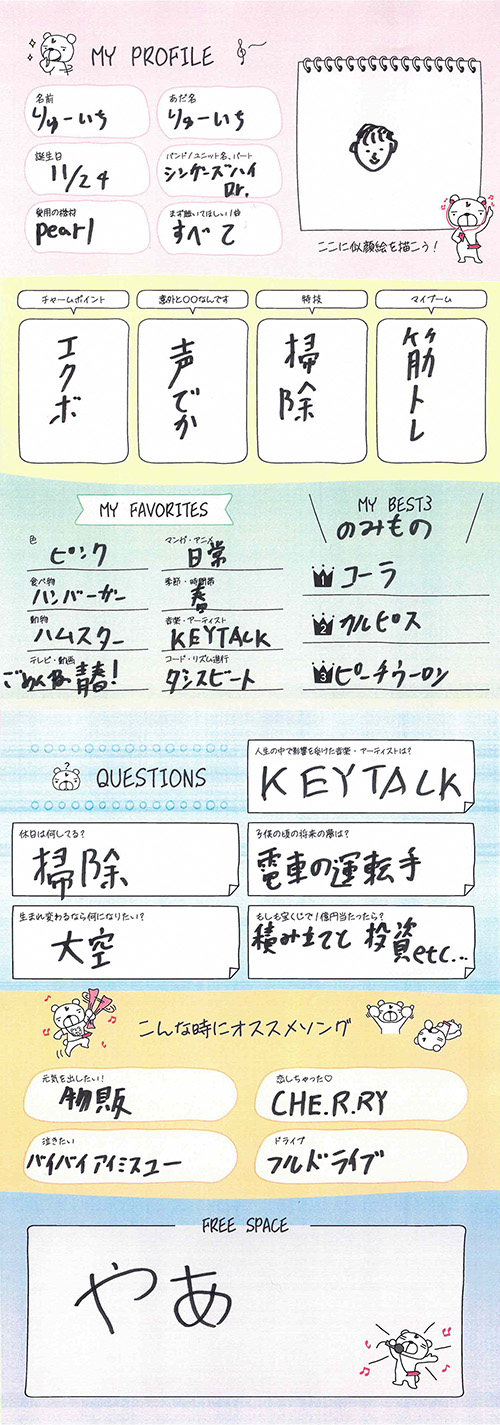 MY PROFILE
名前
りゅーいち
あだ名
りゅーいち
誕生日
11/24
バンド/ユニット名、パート
シンガーズハイ
Dr.
愛用の機材
pearl
まず聴いてほしい1曲
すべて
ここに似顔絵を描こう!
チャームポイント
エクボ
意外と○○なんです
声でか
特技
掃除
マイブーム
筋トレ
MY FAVORITES
色
ピンク
マンガ・アニメ
日常
食べ物
ハンバーガー
季節・時間帯
春
動物
ハムスター
音楽・アーティスト
KEYTALK
テレビ・動画
ごめんね青春!
コード・リズム進行
ダンスビート
MY BEST3
のみもの
1 コーラ
2 カルピス
3 ピーチウーロン
QUESTIONS
人生の中で影響を受けた音楽・アーティストは?
KEYTALK
休日は何してる?
掃除
子供の頃の将来の夢は?
電車の運転手
生まれ変わるなら何になりたい?
大空
もしも宝くじで1億円当たったら?
積み立てと投資etc...
こんな時にオススメソング
元気を出したい!
物販
恋しちゃった♡
CHE.R.RY
泣きたい
バイバイアイミスユー
ドライブ
フルドライブ
FREE SPACE
やあ